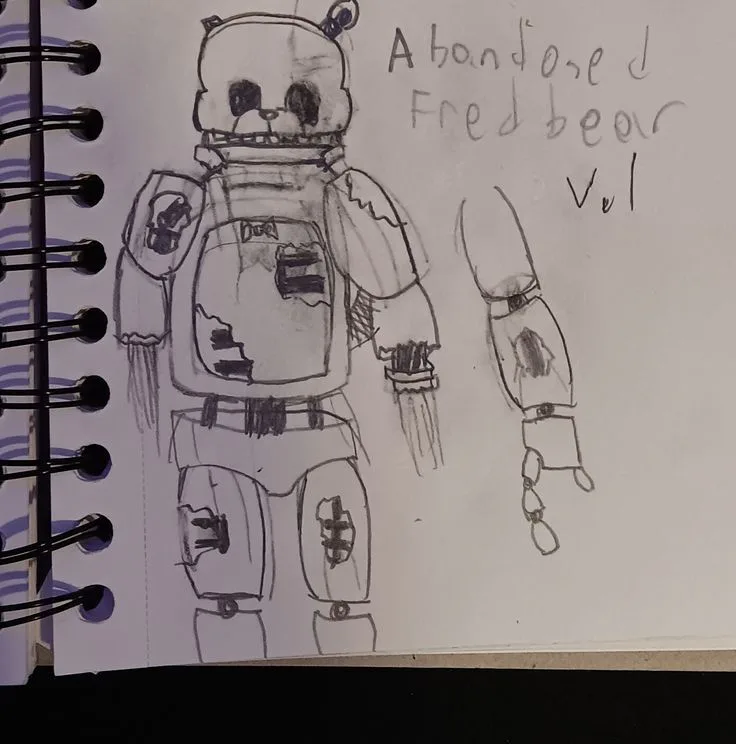 Abandoned
Fredbear
V.1